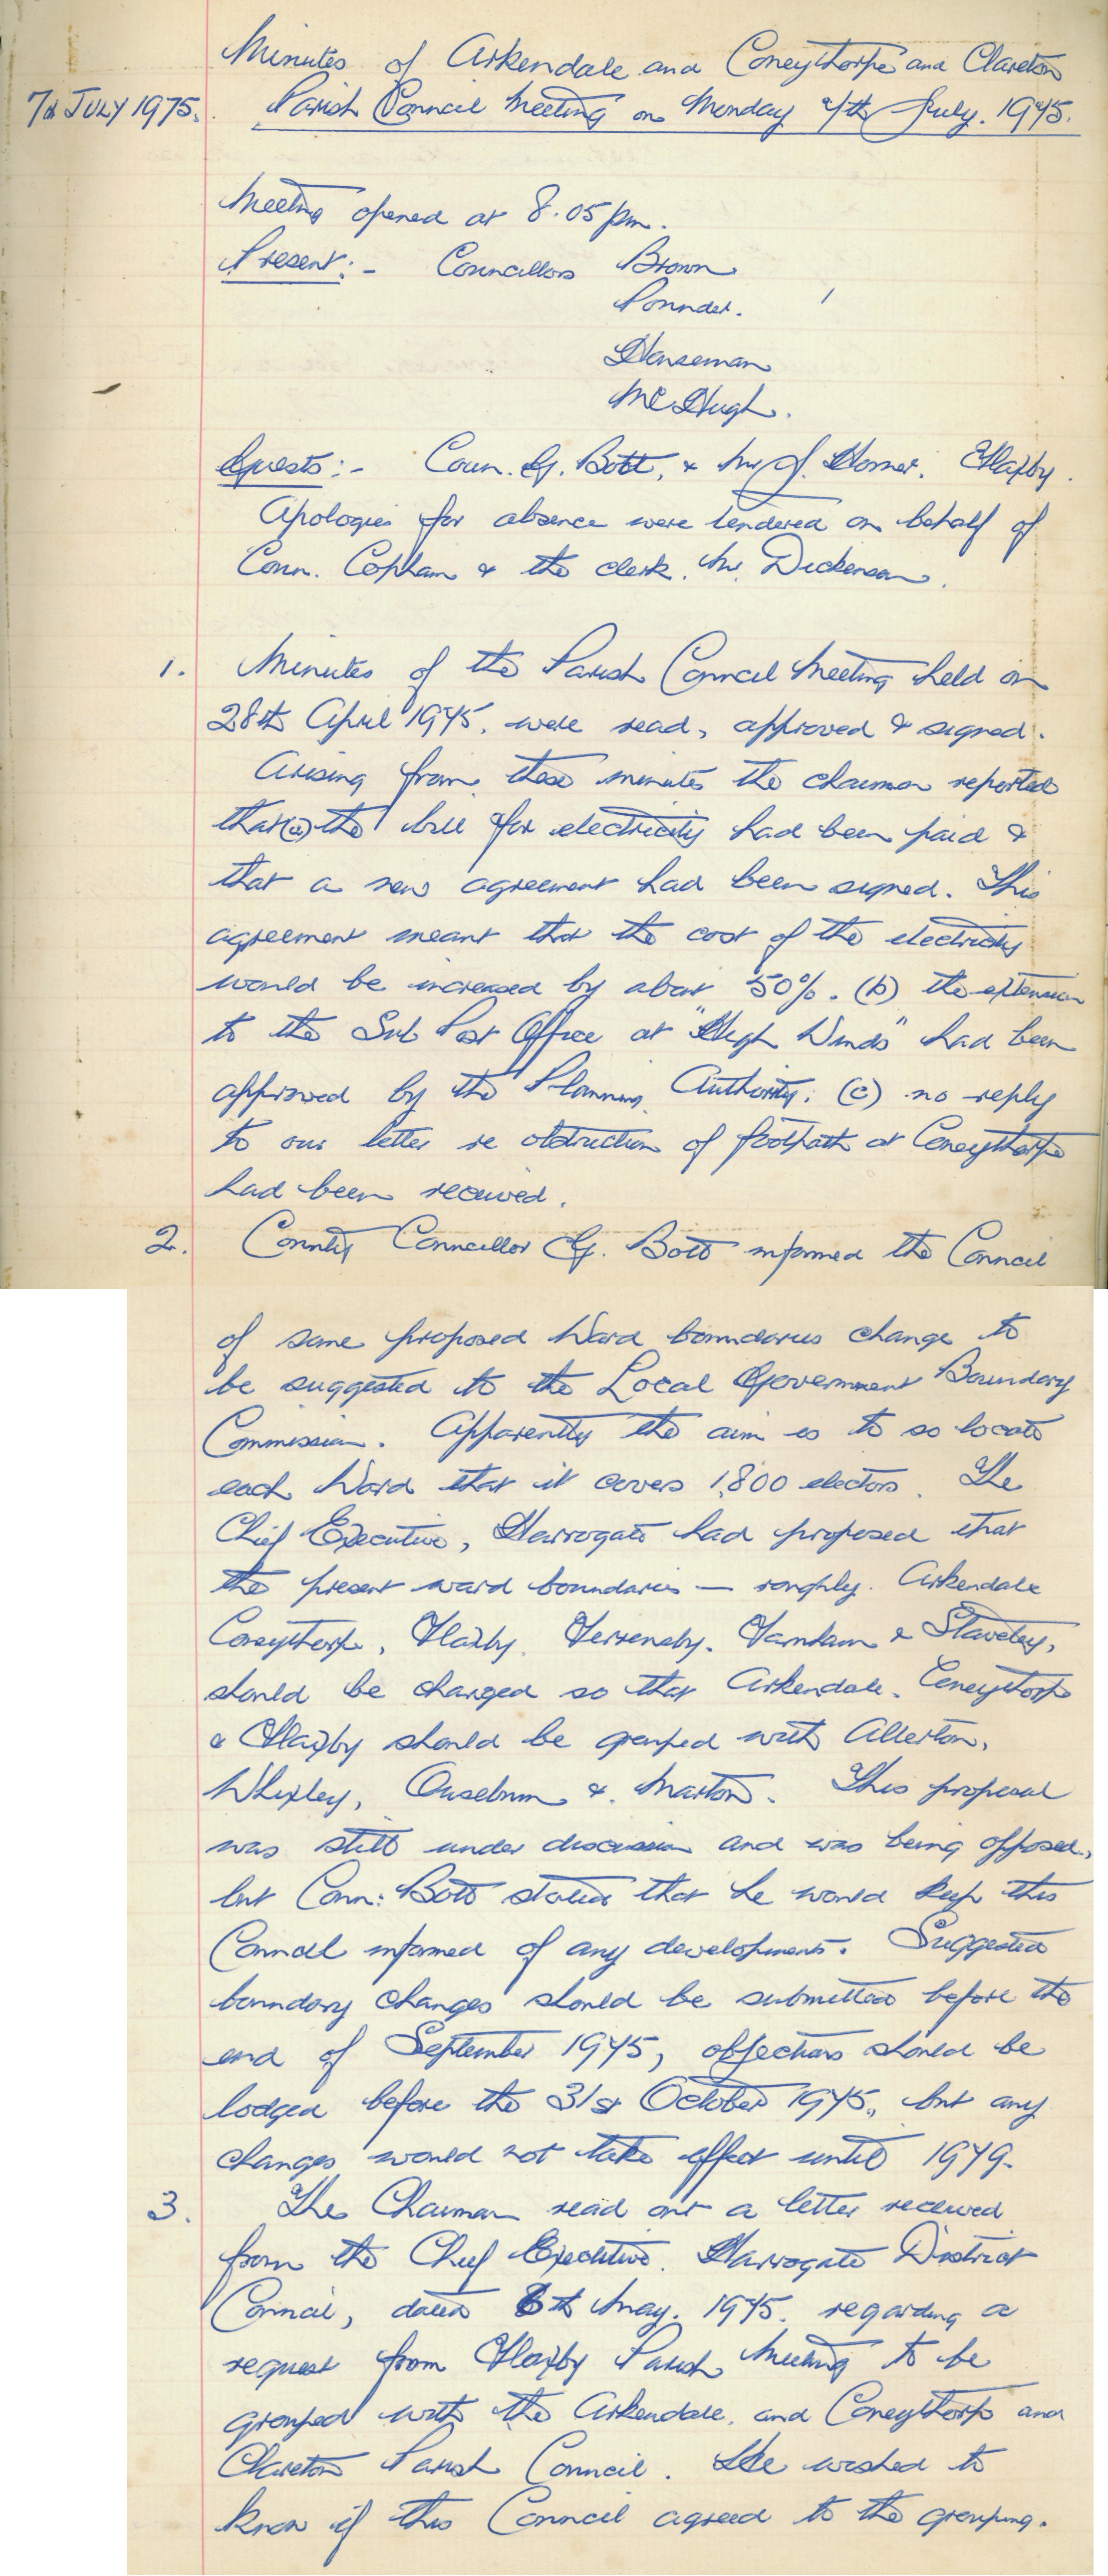 Minutes of Arkendale and Coneythorpe and Clareton
7th JULY 1975. Parish Council Meeting on Monday 7th July. 1975.
Meeting opened at 8.05 pm.
Present:- Councillors Brown
Pounder.
Houseman
McHugh.
Guests:- Coun. G. Bott, & Mr J. Horner. Flaxby.
Apologies for absence were tendered on behalf of
Coun. Copham & the clerk. Mr. Dickenson.
1. Minutes of the Parish Council Meeting held on
28th April 1975. were read, approved & signed.
Arising from these minutes the chairman reported
that (a) the bill for electricity had been paid &
that a new agreement had been signed. This
agreement meant that the cost of the electricity
would be increased by about 50%. (b) the extension
to the Sub Post Office at "High Winds" had been
approved by the Planning Authority: (c) no reply
to our letter re obstruction of footpath at Coneythorpe
had been received.
2. County Councillor G. Bott informed the Council
of some proposed Ward boundaries change to
be suggested to the Local Government Boundary
Commission. Apparently the aim is to so locate
each Ward that it covers 1,800 electors. The
Chief Executive, Harrogate had proposed that
the present ward boundaries — roughly. Arkendale
Coneythorpe, Flaxby. Ferrensby. Farnham & Staveley,
should be changed so that Arkendale. Coneythorpe
& Flaxby should be grouped with Allerton,
Whixley, Ouseburn &. Marton. This proposal
was still under discussion and was being opposed,
but Coun: Bott stated that he would keep this
Council informed of any developments. Suggested
boundary changes should be submitted before the
end of September 1975, objections should be
lodged before the 31st October 1975, but any
changes would not take effect until 1979.
3. The Chairman read out a letter received
from the Chief Executive. Harrogate District
Council, dated 6th May. 1975. regarding a
request from Flaxby Parish Meeting to be
grouped with the Arkendale. and Coneythorpe and
Clareton Parish Council. He wished to
know if this Council agreed to the grouping.